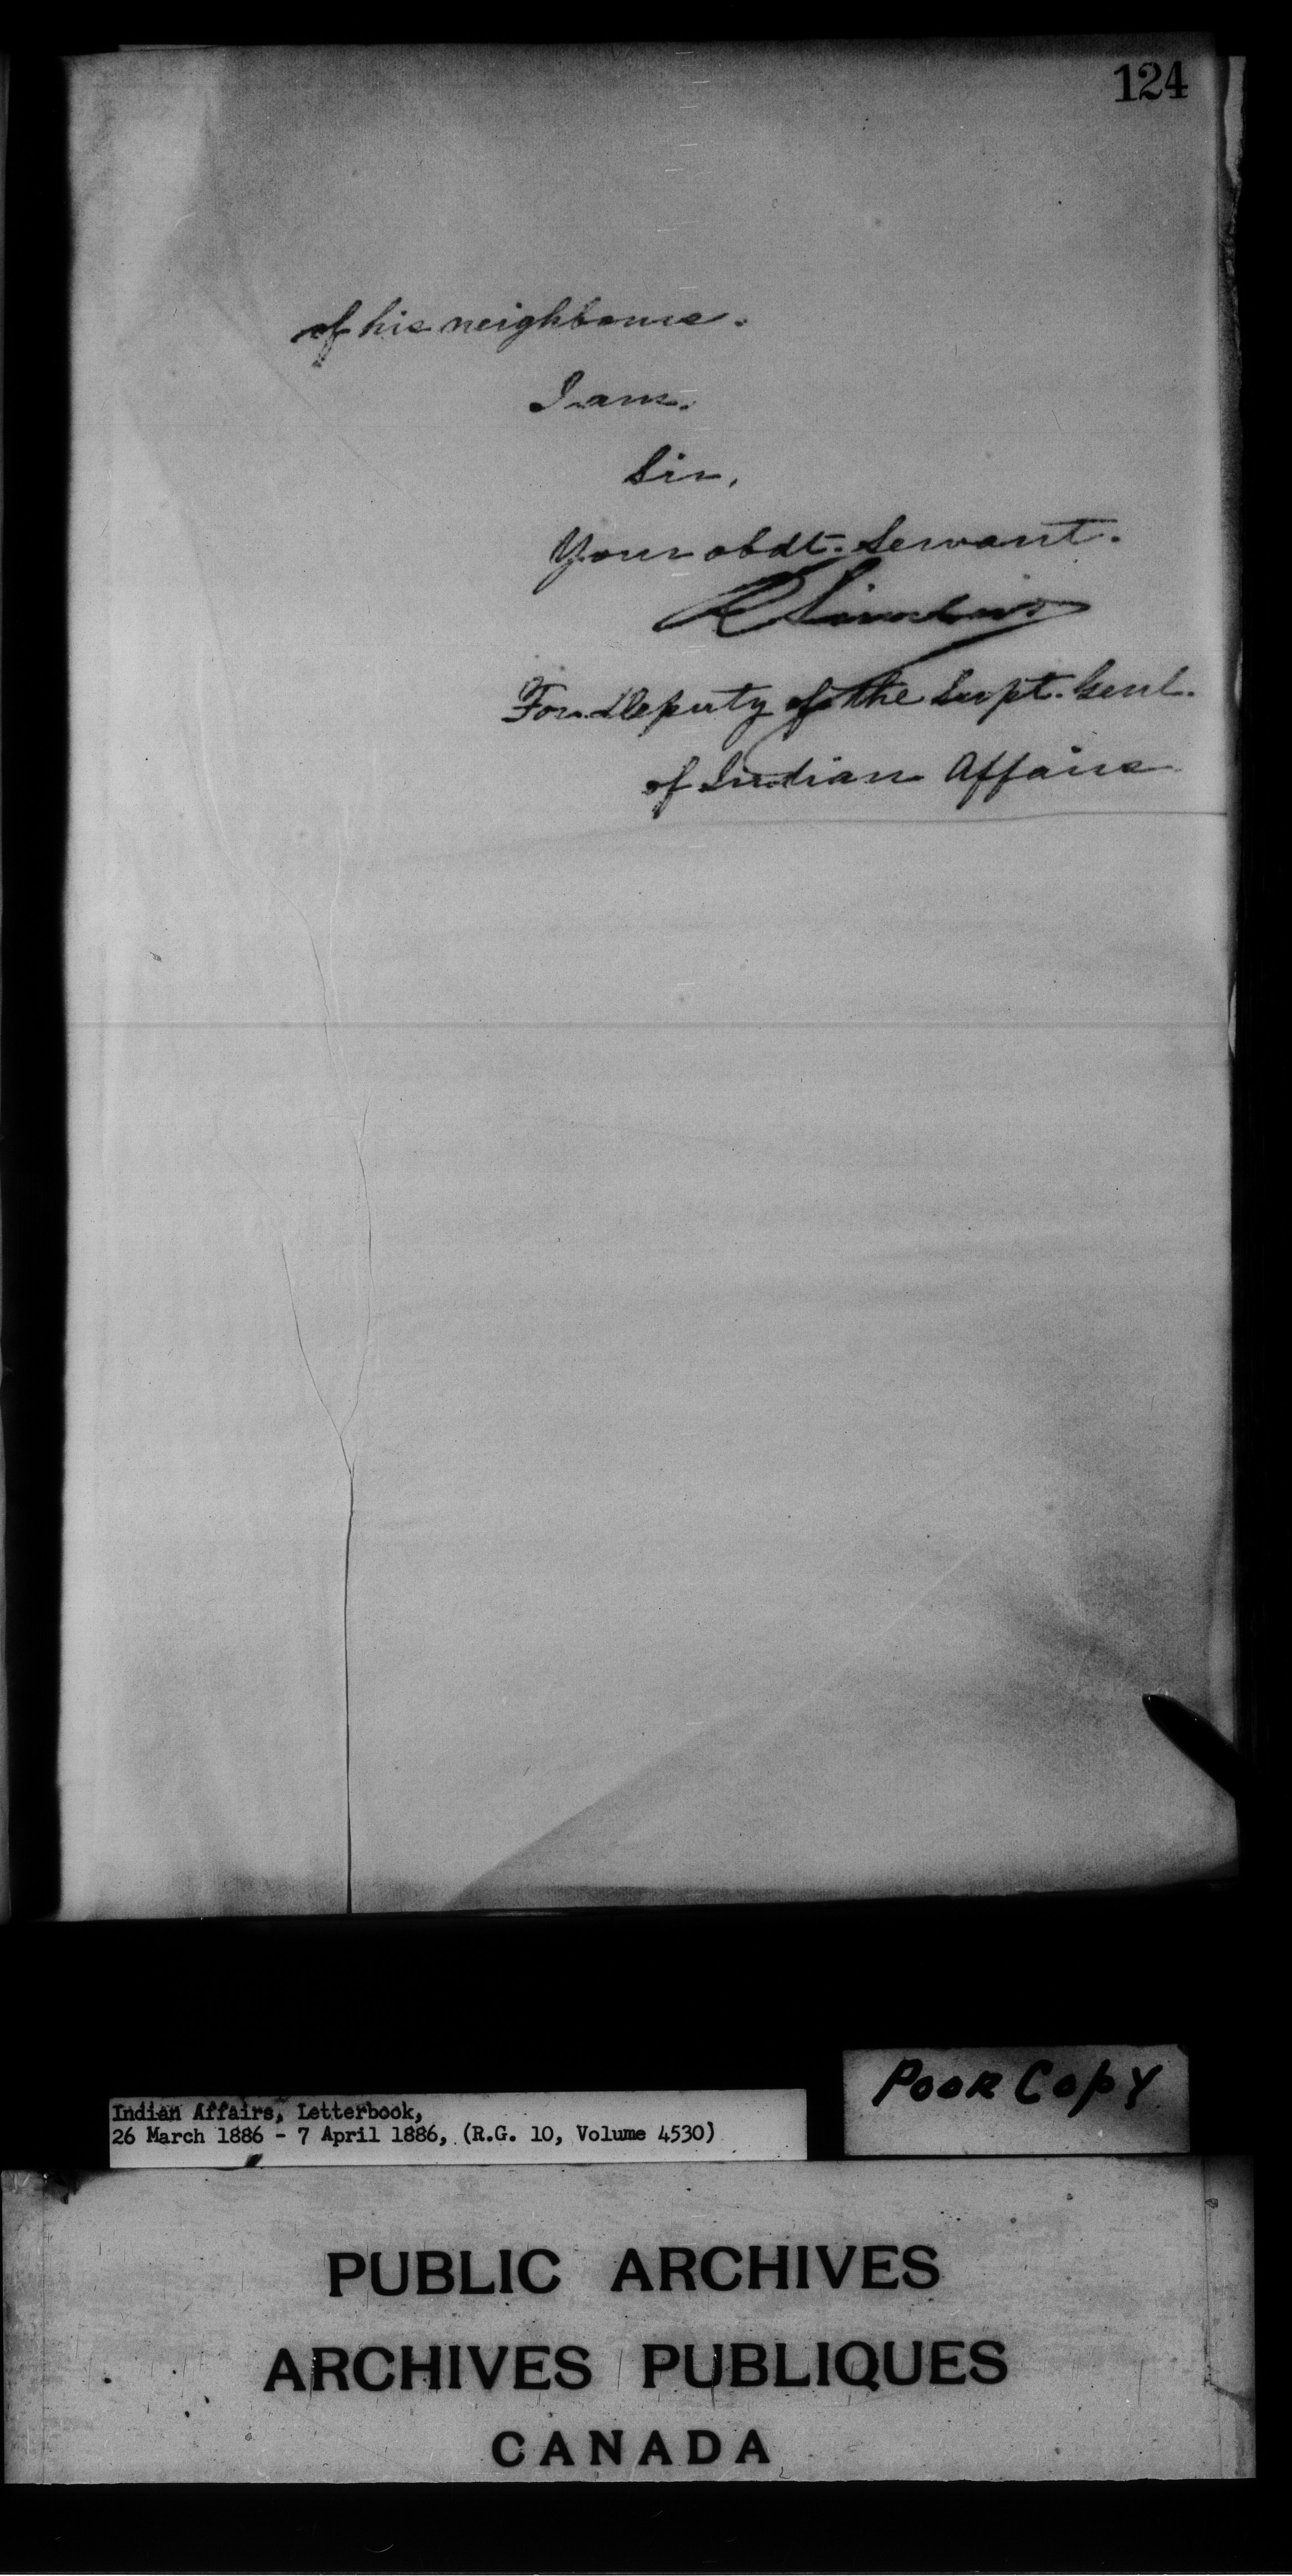 124
of his neighbours.
I am.
Sir,
Your obdt. Servant.
R Sinclair
For Deputy of the Supt. Genl.
of Indian Affairs
Poor Copy
Indian Affairs, Letterbook,
26 March 1886 - 7 April 1886, (R.G. 10, Volume 4530)
PUBLIC ARCHIVES
ARCHIVES PUBLIQUES
CANADA